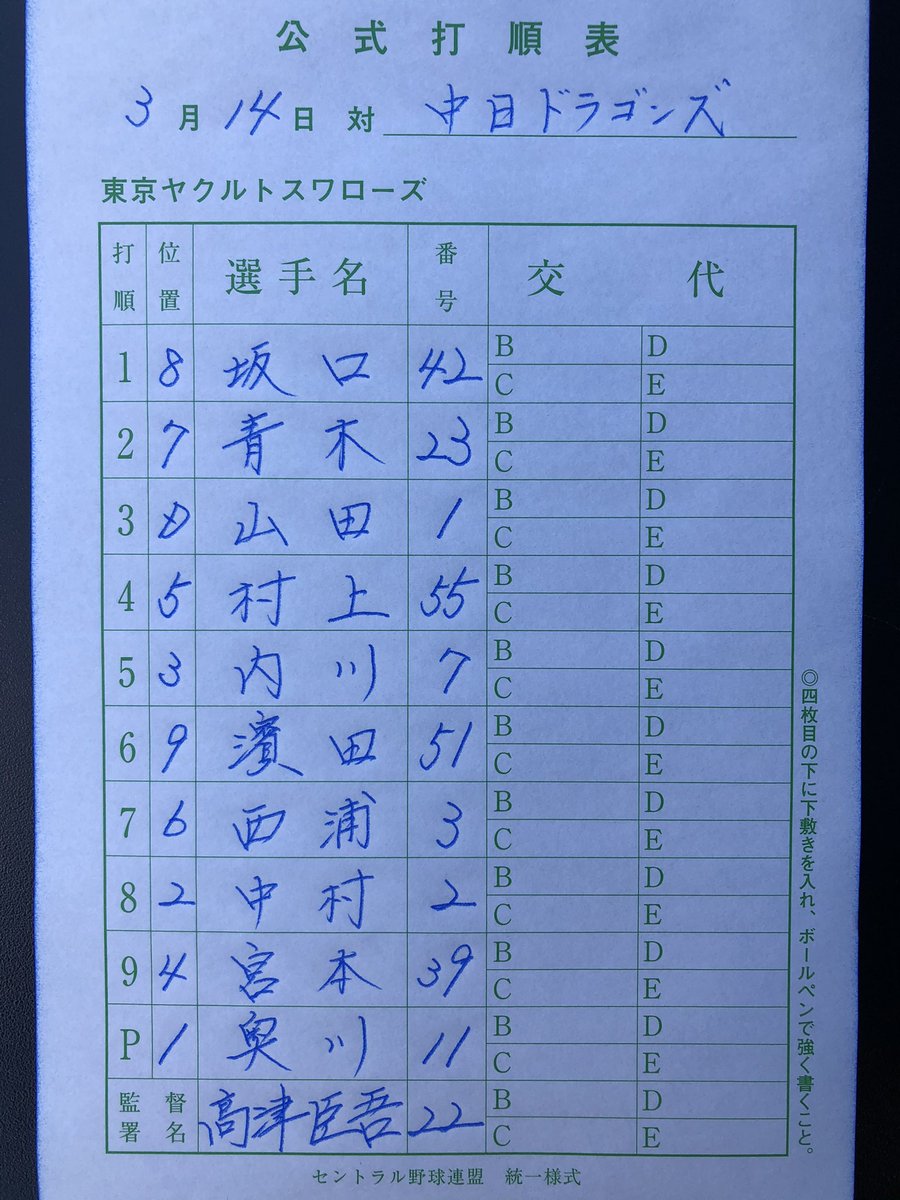 公式打順表
3月14日 対 中日ドラゴンズ
東京ヤクルトスワローズ
打順 位置 選手名 番号 交代
1 8 坂口 42 B D C E
2 7 青木 23 B D C E
3 D 山田 1 B D C E
4 5 村上 55 B D C E
5 3 内川 7 B D C E
6 9 濱田 51 B D C E
7 6 西浦 3 B D C E
8 2 中村 2 B D C E
9 4 宮本 39 B D C E
P 1 奥川 11 B D C E
監督署名 高津臣吾 22 B D C E
◎四枚目の下に下敷きを入れ、ボールペンで強く書くこと。
セントラル野球連盟 統一様式